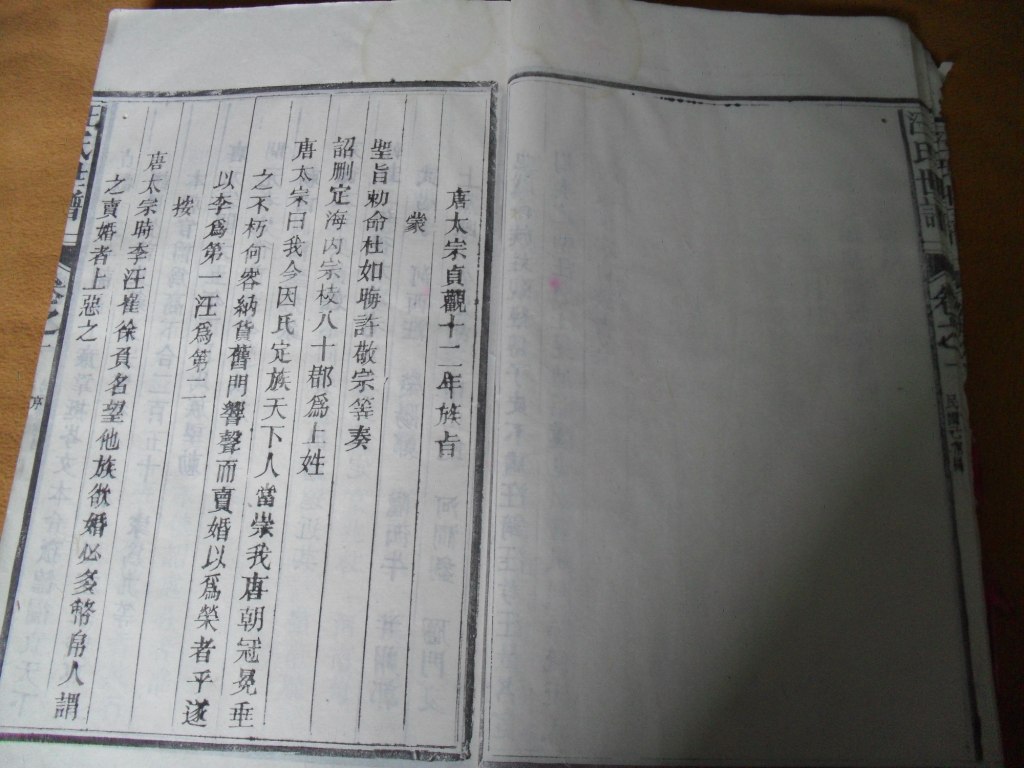 汪氏世譜
卷之一
唐太宗貞觀十二年族旨
蒙
聖旨勅命杜如晦許敬宗等奏
詔刪定海内宗枝八十郡爲上姓
唐太宗曰我今因氏定族天下人當崇我唐朝冠冕垂
之不朽何容納貨舊門響聲而賣婚以爲榮者平遂
以李爲第一汪爲第二
按
唐太宗時李汪崔徐負名望他族欲婚必多幣帛人謂
之賣婚者上惡之
汪氏世譜
卷之一
序